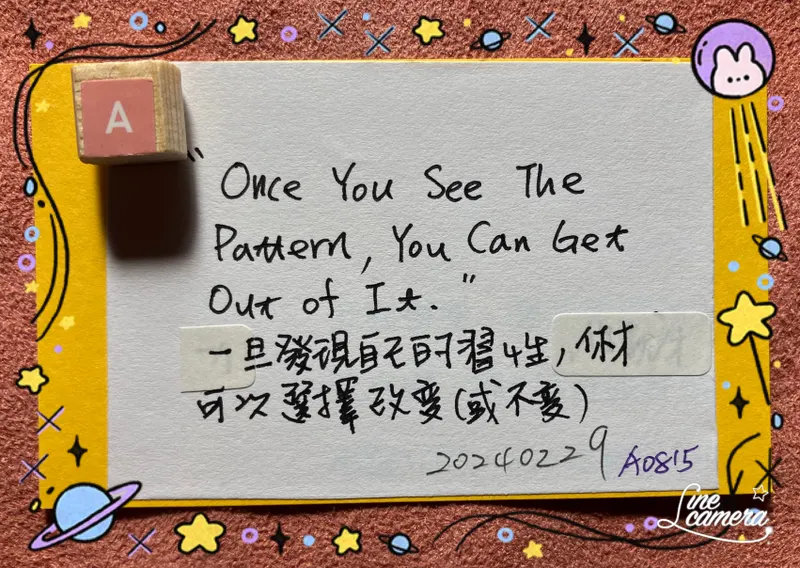 A
"Once You See The
Pattern, You Can Get
Out of It."
一旦發現自己的習性,你才
可以選擇改變(或不變)
20240229 A0815
Line camera